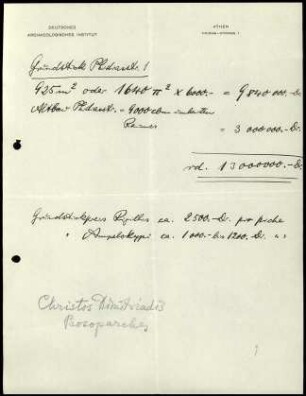 DEUTSCHES
ARCHAEOLOGISCHES INSTITUT
ATHEN
Grundstück Phidiasstr. 1
925 m² oder 1640 π² × 6000.- = 9840 000.-Dr.
Altbau Phidiasstr. = 4000 cbm
= 3 000 000.-Dr.
rd. 13 000 000.-Dr.
Grundstückspreis ca. 2500.-Dr. pro
" Ampelokypi ca. 1000.- bis 1200. Dr. " "
Christos Dimitriadis